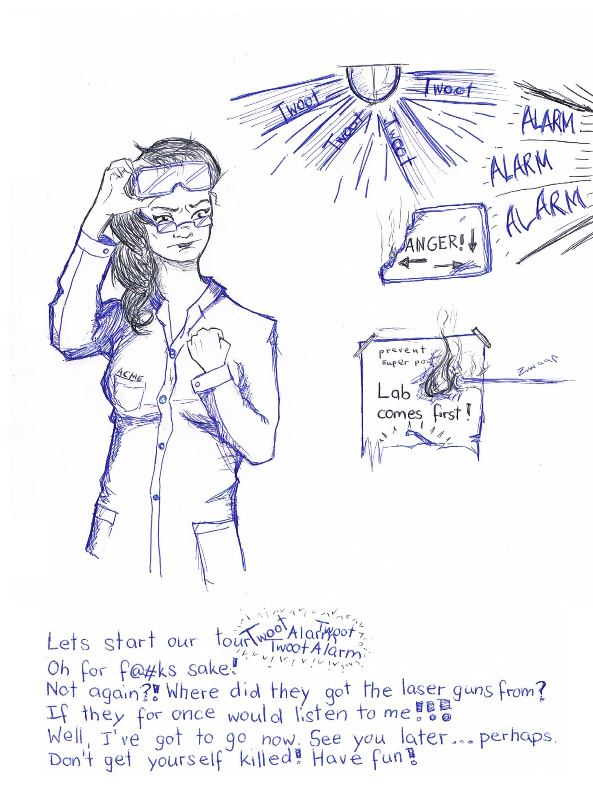 Twoot
Twoot
Twoot
Twoot
ALARM
ALARM
ALARM
ANGER!
ACME
prevent
super po
Zwaap
Lab
comes first!
Lets start our tour Twoot Alarm Twoot
Twoot Alarm
Oh for f@#ks sake!
Not again?! Where did they got the laser guns from?
If they for once would listen to me!!!
Well, I've got to go now. See you later... perhaps.
Don't get yourself killed! Have fun!